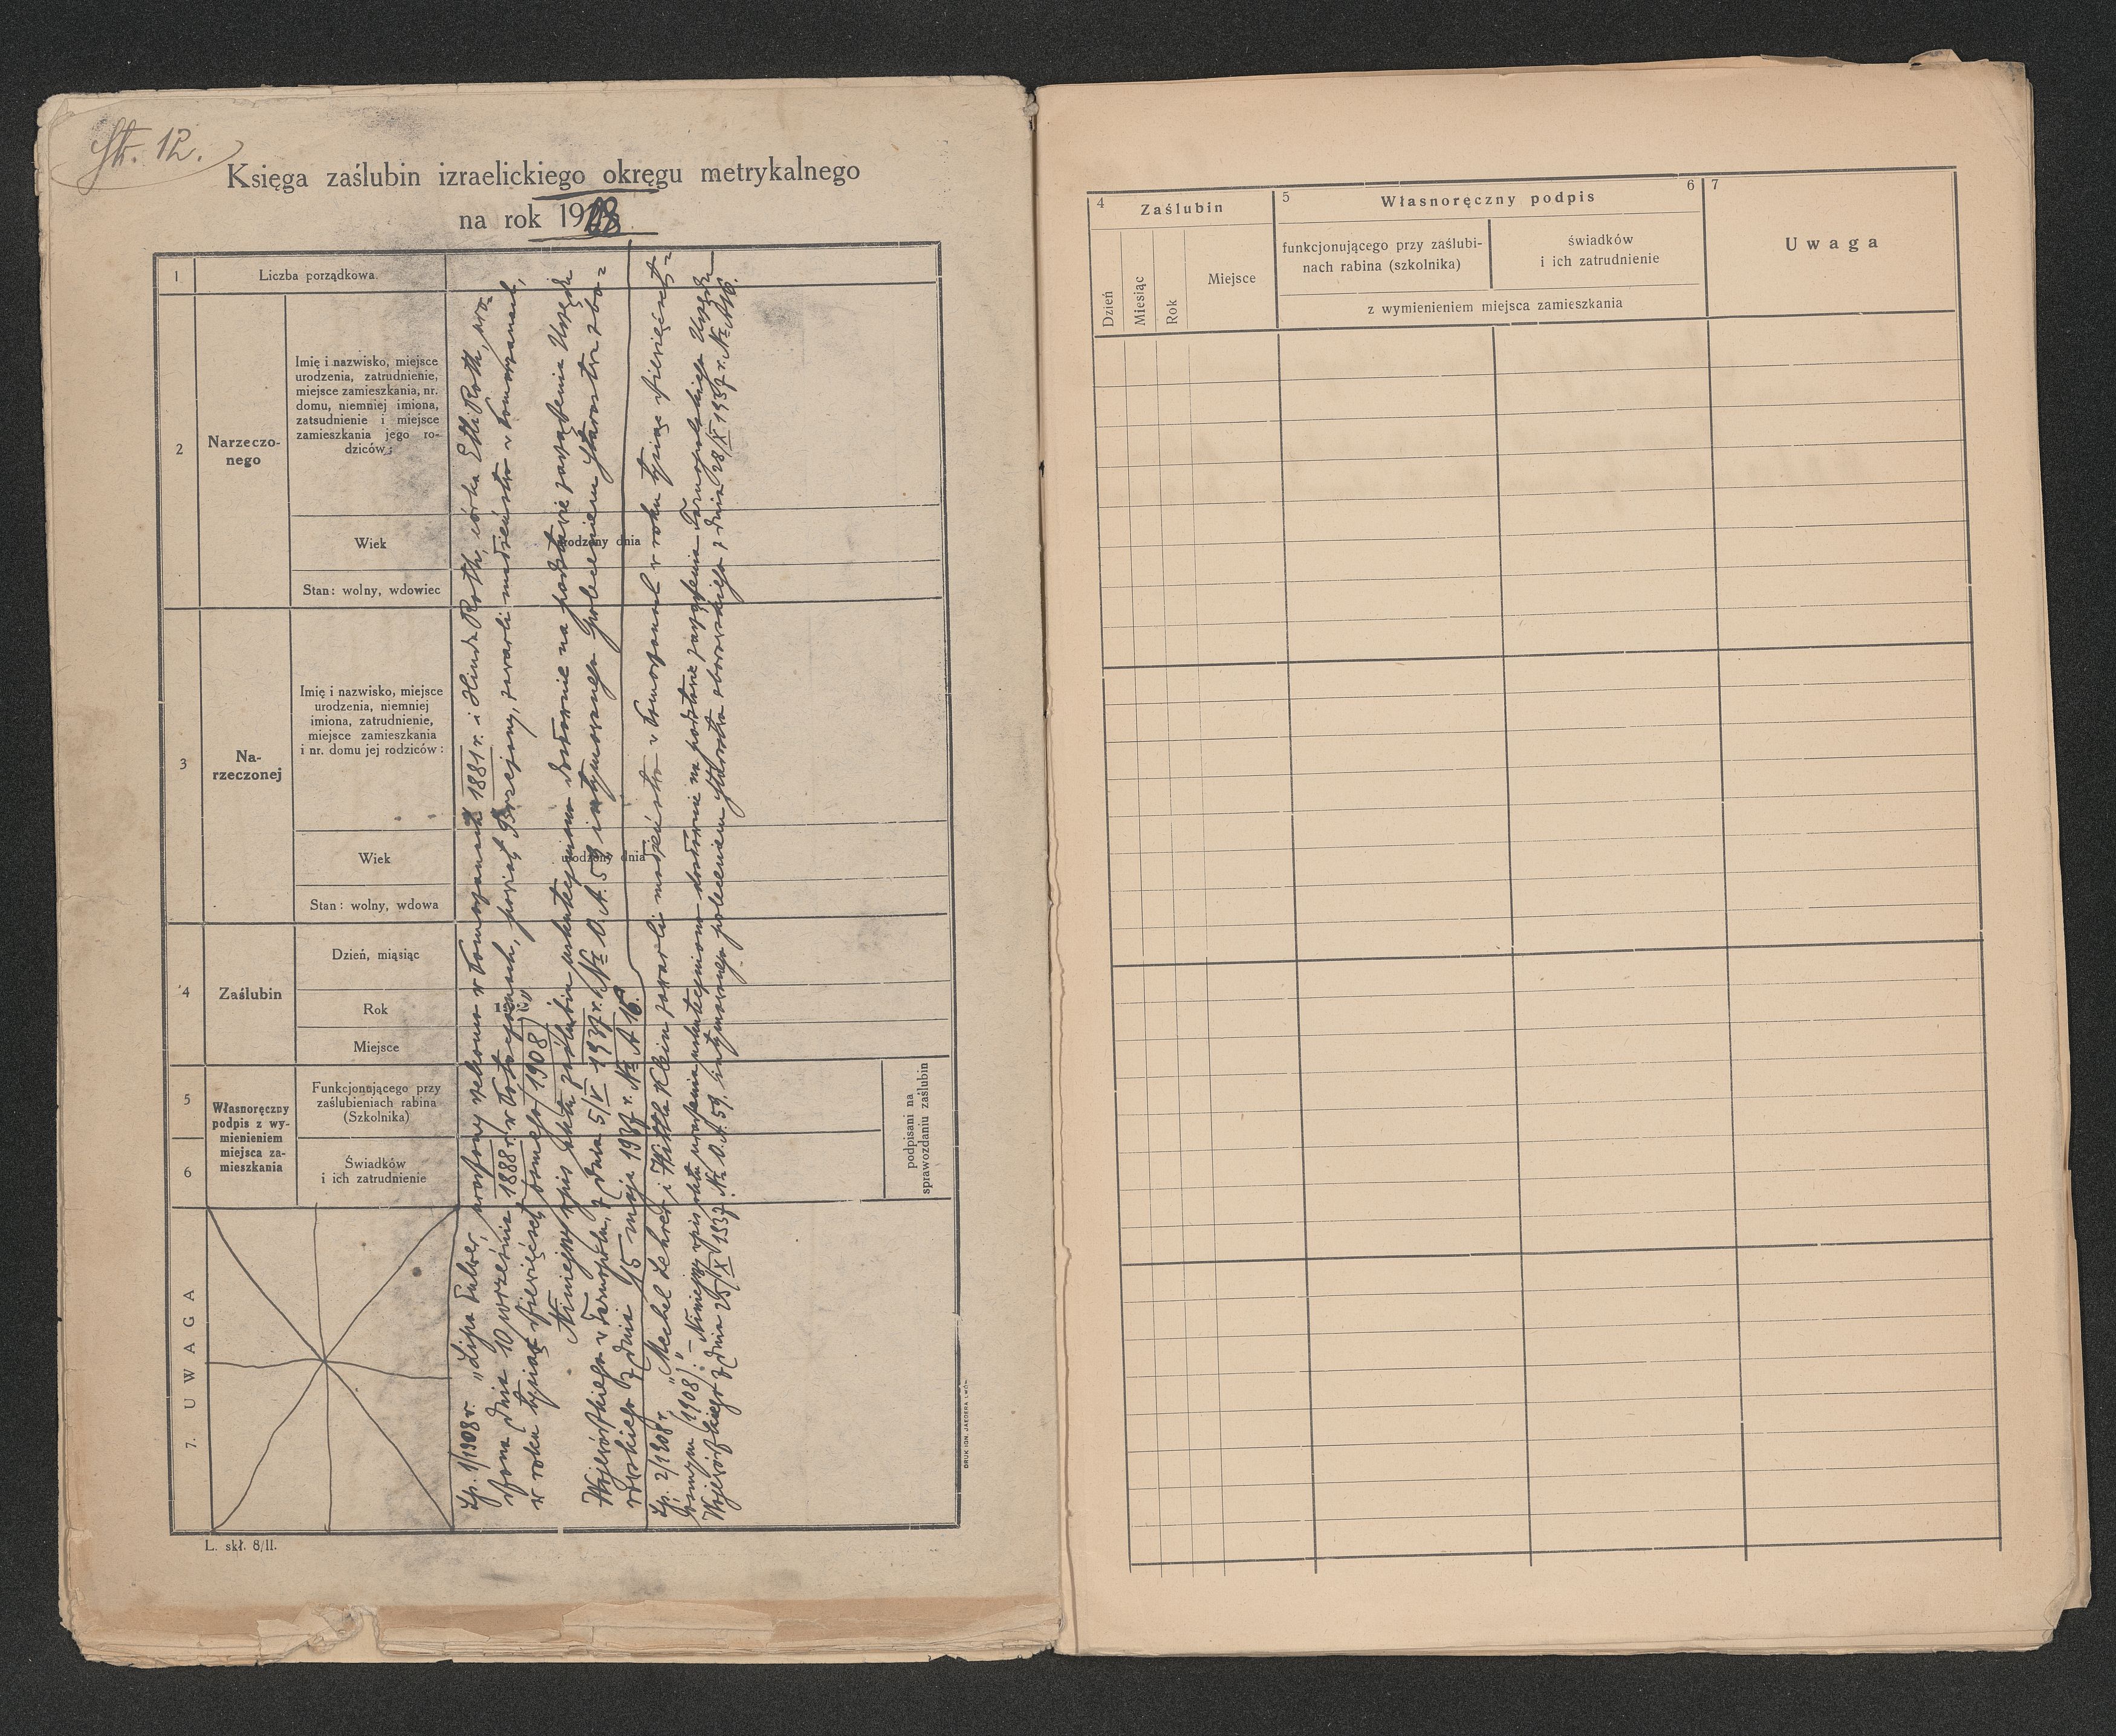 Str. 12.
Księga zaślubin izraelickiego okręgu metrykalnego
na rok 1908
1
Liczba porządkowa.
2
Narzeczo-
nego
Imię i nazwisko, miejsce
urodzenia, zatrudnienie,
miejsce zamieszkania, nr.
domu, niemniej imiona,
zatsudnienie i miejsce
zamieszkania jego ro-
dziców:
Wiek
urodzony dnia
Stan: wolny, wdowiec
3
Na-
rzeczonej
Imię i nazwisko, miejsce
urodzenia, niemniej
imiona, zatrudnienie,
miejsce zamieszkania
i nr. domu jej rodziców:
Wiek
urodzony dnia
Stan: wolny, wdowa
4
Zaślubin
Dzień, miąsiąc
Rok
Miejsce
5
6
Własnoręczny
podpis z wy-
mienieniem
miejsca za-
mieszkania
Funkcjonującego przy
zaślubieniach rabina
(Szkolnika)
Świadków
i ich zatrudnienie
podpisani na
sprawozdaniu zaślubin
7. UWAGA
Lp. 1/1908 r. "Lipa Pulwer, urodzony w 1881 r. i Hinda Roth, córka Etli Roth, uro-
dzona dnia 10 września 1888 r. w powiat Brzeżany, zawarli małżeństwo w
w roku tysiąc dziewięćset ósmego /1908/"
Niniejszy wpis aktu zaślubin uskuteczniono dosłownie na podstawie zarządzenia Urzędu
Wojewódzkiego w Tarnopolu, z dnia 5/V 1937 r. Nr. O.A. 59, intymowanego poleceniem Starostwa zbo-
rowskiego z dnia 15 maja 1937 r. Nr. A 16.
Lp. 2/1908 r. "Mechel Lehrer i Wittla Klein zawarli małżeństwo w w roku tysiąc dziewięćset
ósmym /1908/." – Niniejszy wpis aktu uskuteczniono dosłownie na podstawie zarządzenia Tarnopolskiego Urzędu
Wojewódzkiego z dnia 25/IX 1937 Nr. O.A. 59, intymowanego poleceniem Starostwa zborowskiego z dnia 28/IX 1937 r. Nr. A 16.
L. skł. 8/II.
DRUK IGN. JAEGERA LWÓW
4
Zaślubin
Dzień
Miesiąc
Rok
Miejsce
5
Własnoręczny podpis
6
funkcjonującego przy zaślubi-
nach rabina (szkolnika)
świadków
i ich zatrudnienie
z wymienieniem miejsca zamieszkania
7
Uwaga